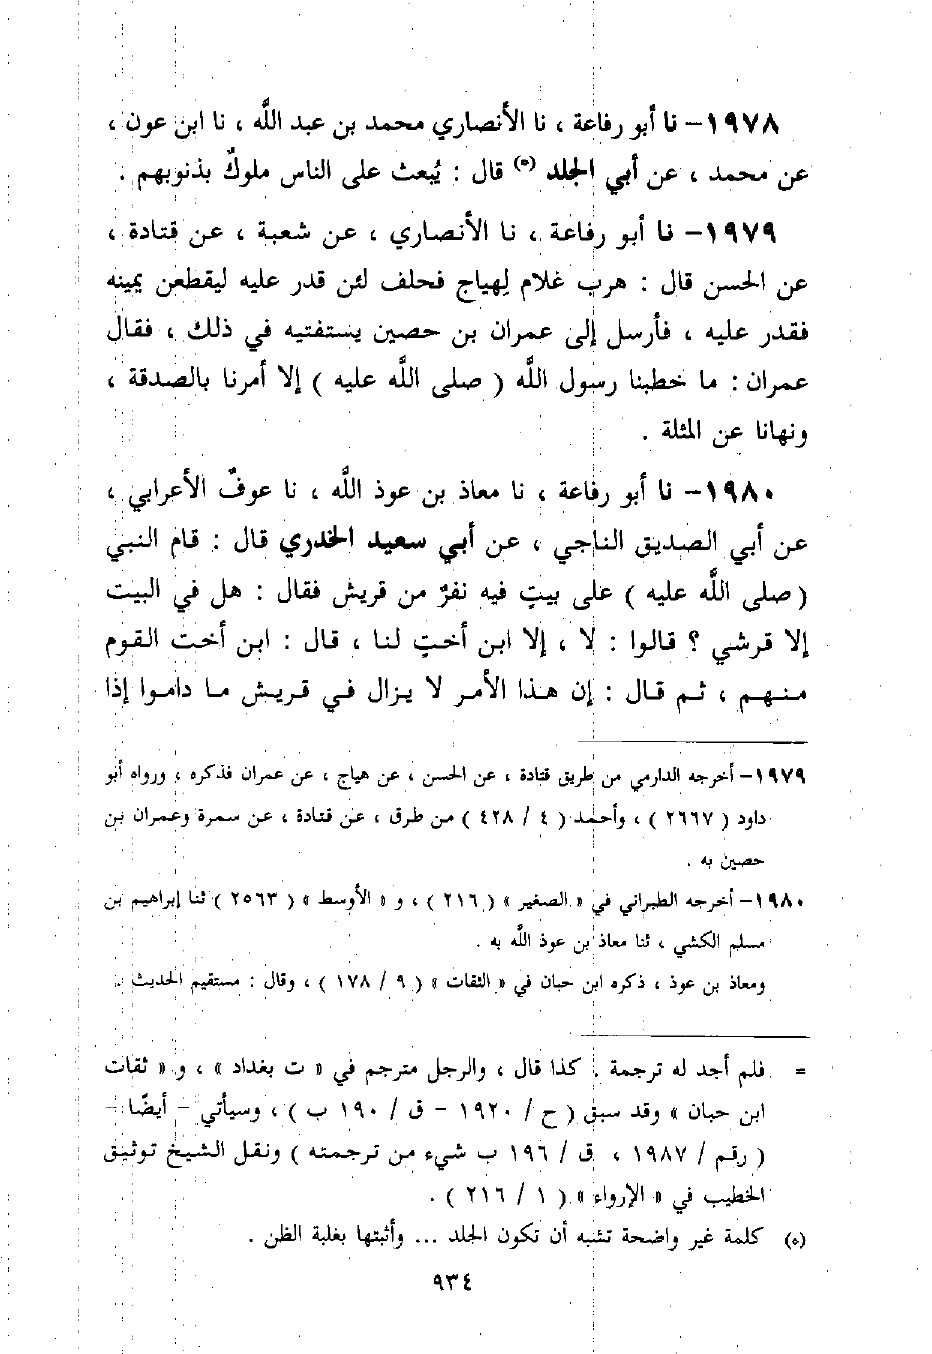 ١٩٧٨- نا أبو رفاعة ، نا الأنصاري محمد بن عبد اللَّه ، نا ابن عون ،
عن محمد ، عن أبي الجلد (٥) قال : يُبعث على الناس ملوكٌ بذنوبهم .
١٩٧٩- نا أبو رفاعة ، نا الأنصاري ، عن شعبة ، عن قتادة ،
عن الحسن قال : هرب غلام لِهياج فحلف لئن قدر عليه ليقطعن يمينه
فقدر عليه ، فأرسل إلى عمران بن حصين يستفتيه في ذلك ، فقال
عمران : ما خطبنا رسول اللَّه ( صلى اللَّه عليه ) إلا أمرنا بالصدقة ،
ونهانا عن المثلة .
١٩٨٠- نا أبو رفاعة ، نا معاذ بن عوذ اللَّه ، نا عوفٌ الأعرابي ،
عن أبي الصديق الناجي ، عن أبي سعيد الخدري قال : قام النبي
( صلى اللَّه عليه ) على بيتٍ فيه نفرٌ من قريش فقال : هل في البيت
إلا قرشي ؟ قالوا : لا ، إلا ابن أختٍ لنا ، قال : ابن أخت القوم
منهم ، ثم قال : إن هذا الأمر لا يزال في قريش ما داموا إذا
١٩٧٩- أخرجه الدارمي من طريق قتادة ، عن الحسن ، عن هياج ، عن عمران فذكره ، ورواه أبو
داود ( ٢٦٦٧ ) ، وأحمد ( ٤ / ٤٢٨ ) من طرق ، عن قتادة ، عن سمرة وعمران بن
حصين به .
١٩٨٠- أخرجه الطبراني في « الصغير » ( ٢١٦ ) ، و « الأوسط » ( ٢٥٦٣ ) ثنا إبراهيم بن
مسلم الكشي ، ثنا معاذ بن عوذ اللَّه به .
ومعاذ بن عوذ ، ذكره ابن حبان في « الثقات » ( ٩ / ١٧٨ ) ، وقال : مستقيم الحديث .
= فلم أجد له ترجمة . كذا قال ، والرجل مترجم في « ت بغداد » ، و « ثقات
ابن حبان » وقد سبق ( ح / ١٩٢٠ - ق / ١٩٠ ب ) ، وسيأتي - أيضًا -
( رقم / ١٩٨٧ ، ق / ١٩٦ ب شيء من ترجمته ) ونقل الشيخ توثيق
الخطيب في « الإرواء » ( ١ / ٢١٦ ) .
(٥) كلمة غير واضحة تشبه أن تكون الجلد ... وأثبتها بغلبة الظن .
٩٣٤